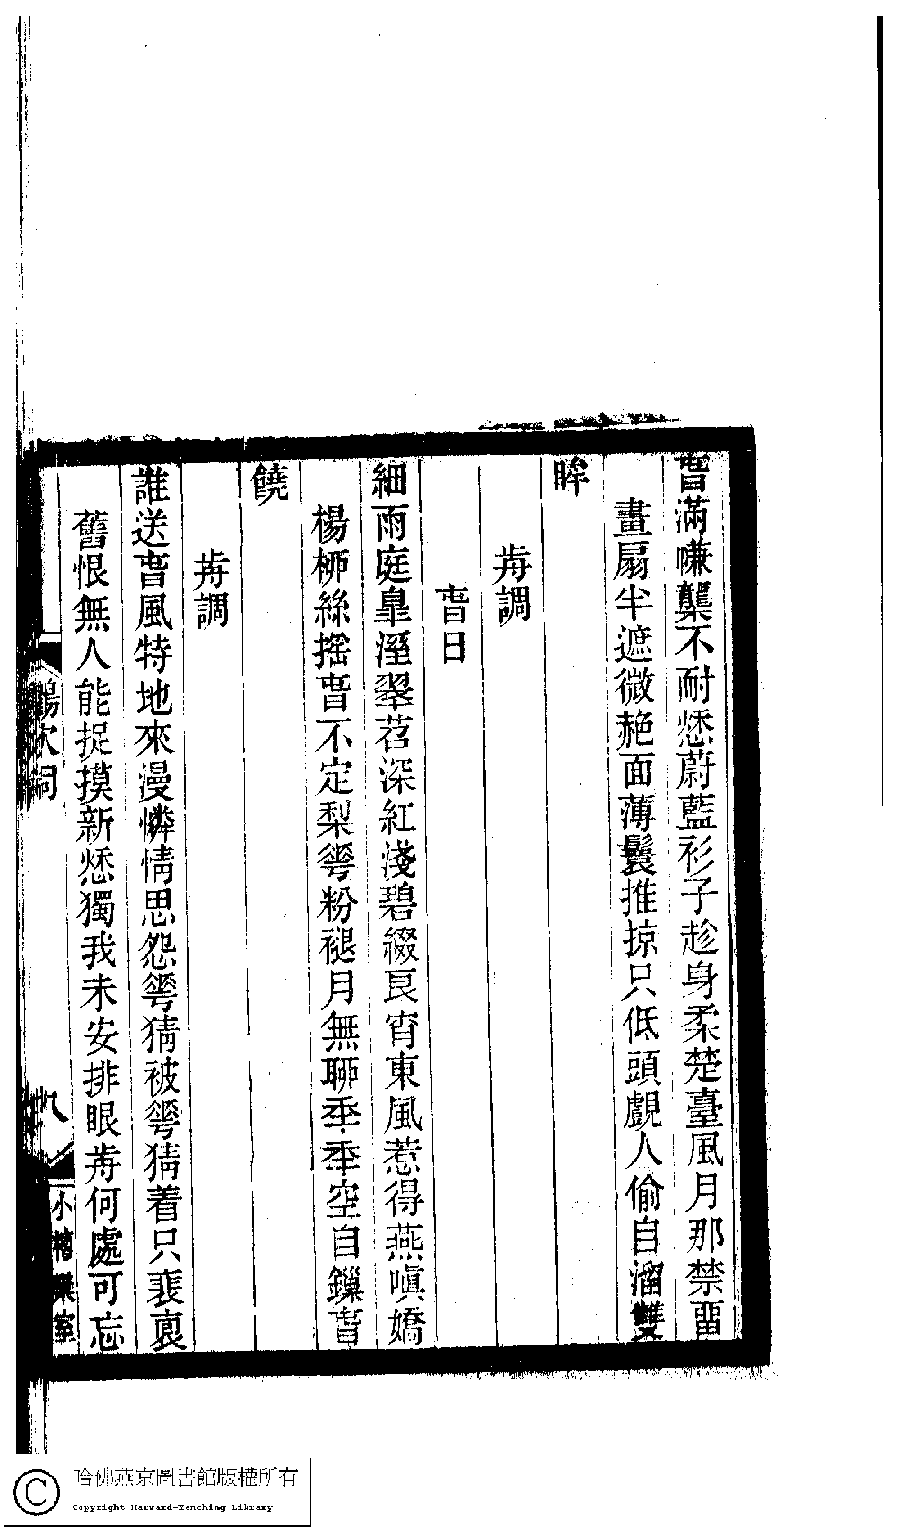 旾滿㡘櫳不耐愁蔚藍衫子趁身柔楚臺風月那禁畱
畫扇半遮微赩面薄鬟推掠只低頭覷人偷自溜雙
眸
歬調
旾日
細雨庭皐溼翠苕深紅淺碧綴良宵東風惹得燕嗔嬌
楊桺絲搖旾不定梨華粉褪月無聊秊秊空自鏁旾
饒
歬調
誰送旾風特地來漫憐情思怨華猜被華猜着只裵褱
舊恨無人能捉摸新愁獨我未安排眼歬何處可忘
詞
八
小檀欒室
哈佛燕京圖書館版權所有
Copyright Harvard-Yenching Library